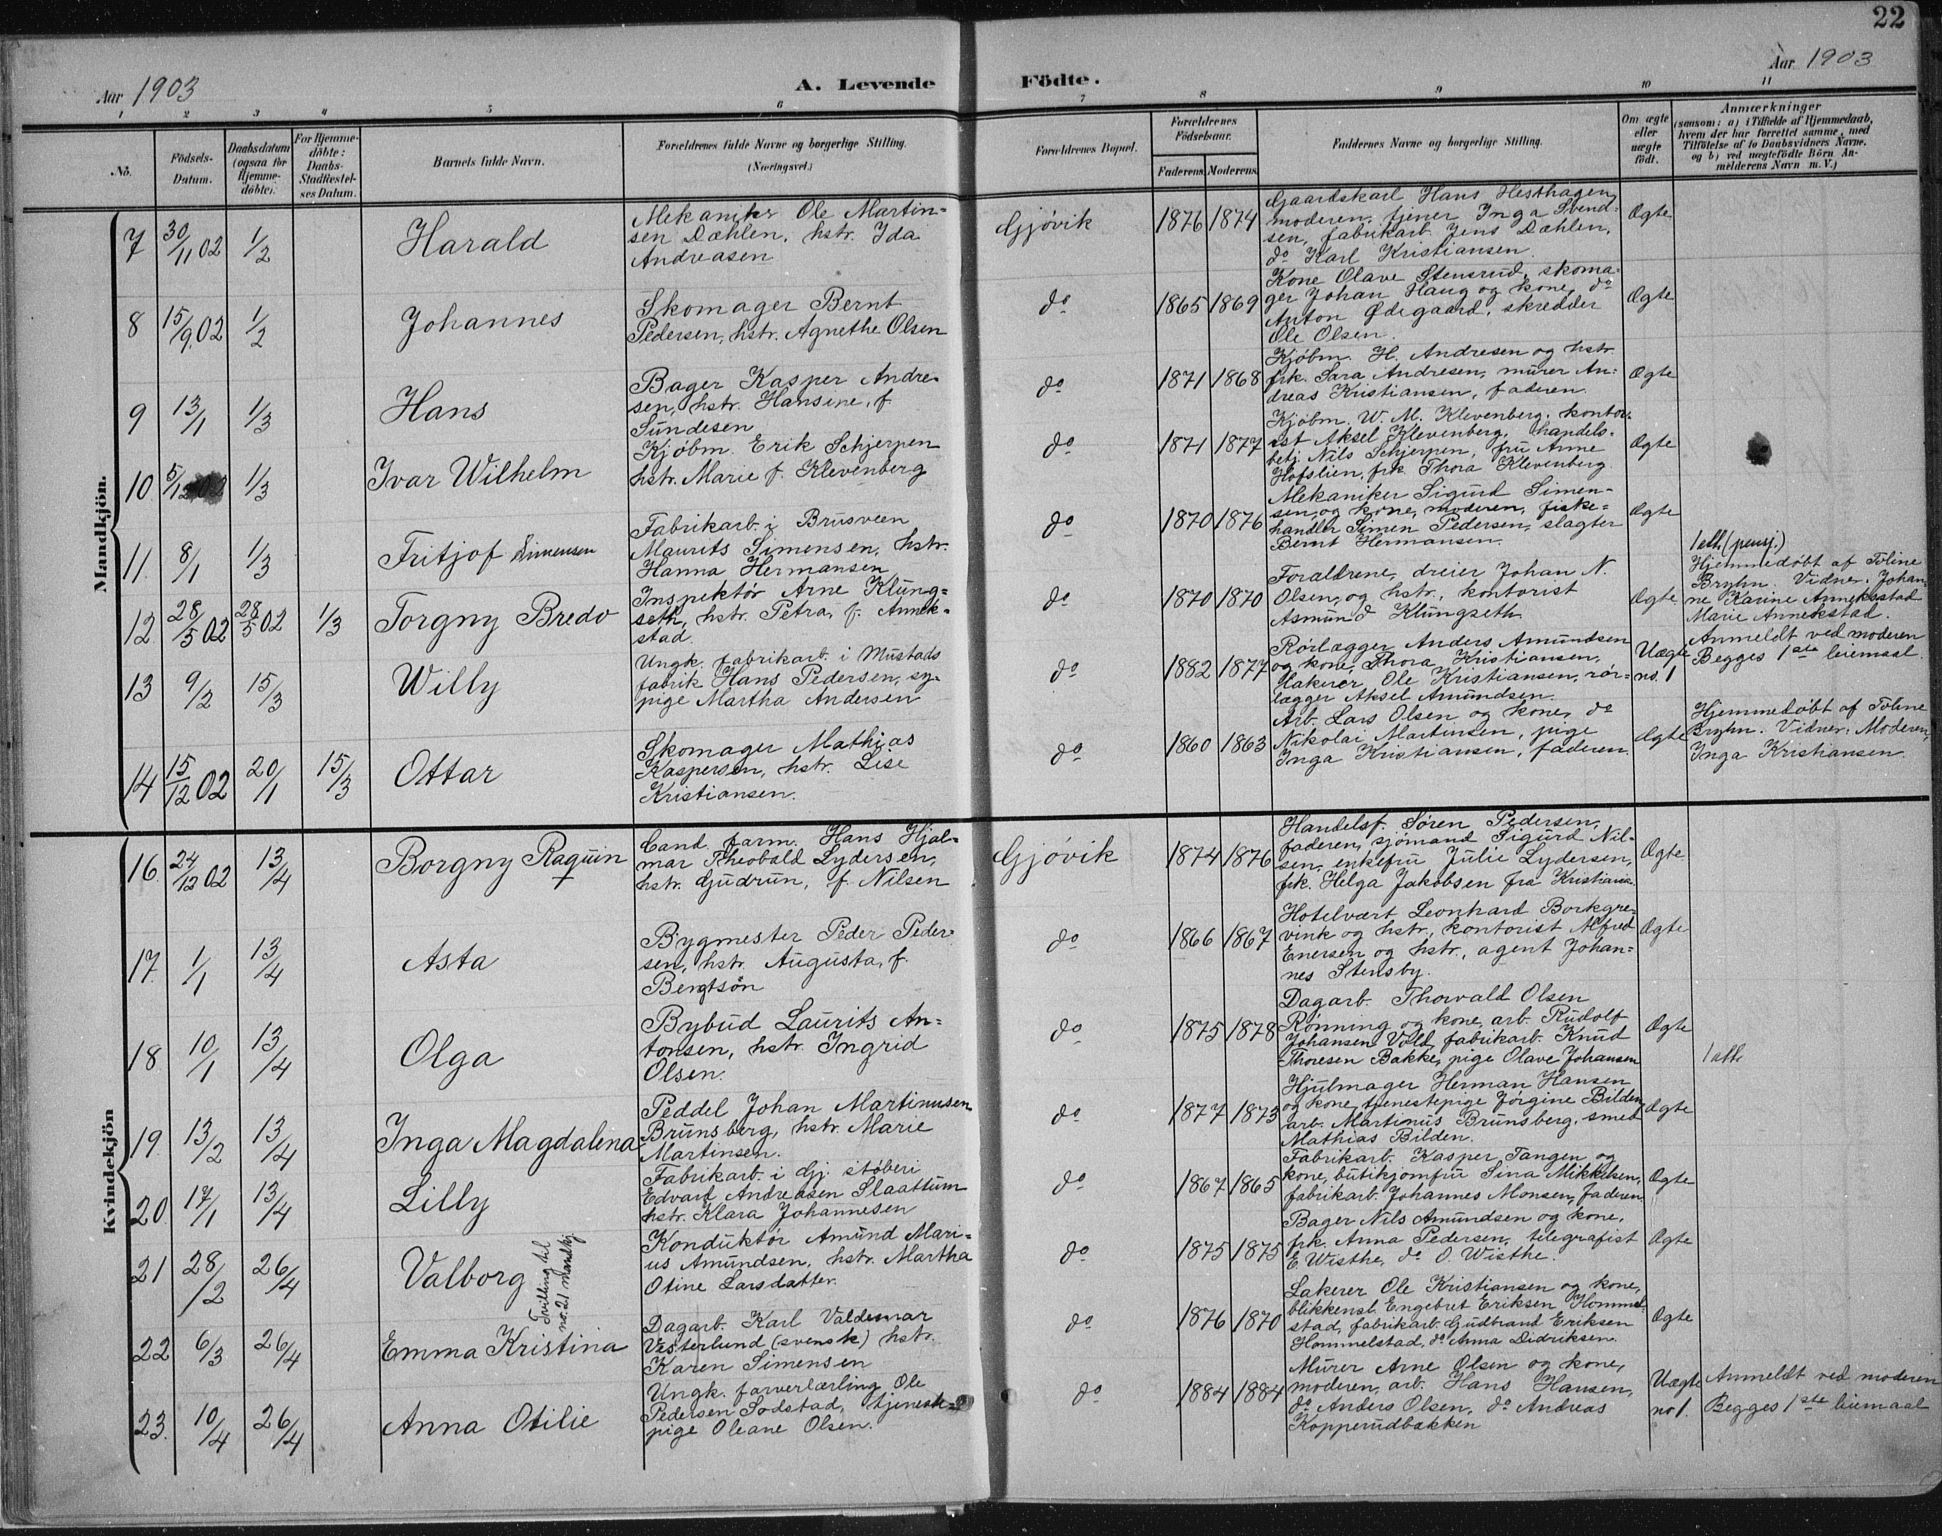 22
Aar 1903
A. Levende Födte.
Aar 1903
1 2 3 4 5 6 7 8 9 10 11
No.
Födsels-
Datum.
Daabsdatum
(ogsaa for
Hjemme-
döbte).
For Hjemme-
döbte:
Daabs-
Stadfestel-
ses Datum.
Barnets fulde Navn.
Forældrenes fulde Navne og borgerlige Stilling.
(Næringsvei.)
Forældrenes Bopæl.
Forældrenes
Födselsaar.
Faderens. Moderens.
Faddernes Navne og borgerlige Stilling.
Om ægte
eller
uægte
födt.
Anmærkninger
(saasom: a) i Tilfælde af Hjemmedaab,
hvem der har forrettet samme, med
Tilföielse af to Daabsvidners Navne,
og b) ved uægtefödte Börn An-
melderens Navn m. V.)
Mandkjön.
7 30/11 02 1/2 Harald
Mekaniker Ole Martin-
sen Dæhlen, hstr. Ida
Andreasen
Gjøvik 1876 1874
Gaardskarl Hans Hesthagen,
moderen, tjener Inga Svend-
sen, fabrikarb. Jens Dæhlen,
do Karl Kristiansen.
Ægte
8 15/9 02 1/2 Johannes
Skomager Bernt
Pedersen, hstr. Agnethe Olsen
do 1865 1869
Kone Olave Stensrud, skoma-
ger Johan Haug og kone, do
Anton Ødegaard, skredder
Ole Olsen.
Ægte
9 13/1 1/3 Hans
Bager Kasper Andre-
sen, hstr. Hansine, f.
Sundesen
do 1871 1868
Kjøbm. H. Andresen og hstr.
frk. Sara Andresen, murer An-
dreas Kristiansen, faderen.
Ægte
10 5/12 02 1/3 Ivar Wilhelm
Kjøbm. Erik Schjerpen
hstr. Marie f. Klevenberg
do 1871 1877
Kjøbm. W. M. Klevenberg, kontor-
ist Aksel Klevenberg, handels-
betj. Nils Schjerpen, fru Anne
Hofslien, frk. Thora Klevenberg.
Ægte
11. 8/1 1/3 Fritjof Simensen
Fabrikarb. i Brusveen
Maurits Simensen, hstr.
Hanna Hermansen
do 1870 1876
Mekaniker Sigurd Simen-
sen, og kone, moderen, fiske-
handler Simen Pedersen, slagter
Bernt Hermansen.
Ægte
12. 28/5 02 28/5 02 1/3 Torgny Bredo
Inspektør Arne Klung-
seth, hstr. Petra, f. Annek-
stad
do 1870 1870
Forældrene, dreier Johan N.
Olsen, og hstr., kontorist
Asmund Klungseth
Ægte
1 att. (pensj.)
Hjemmedøbt af Toline
Bryhn. Vidner. Johan-
ne Karine Anneksstad
Marie Annekstad.
13 9/2 15/3 Willy
Ungk. fabrikarb. i Mustads
fabrik Hans Pedersen, sy-
pige Martha Andersen
do 1882 1877
Rørlægger Anders Amundsen
og kone, Thora Kristiansen,
Hakerør, Ole Kristiansen, rør-
lægger Aksel Amundsen.
Uægte
no. 1
Anmeldt ved moderen
Begges 1ste leiemaal.
14 15/12 02 20/1 15/3 Ottar
Skomager Mathias
Kaspersen, hstr. Lise
Kristiansen.
do 1860 1863
Arb. Lars Olsen og kone, do
Nikolai Martinsen, pige
Inga Kristiansen, faderen.
Ægte
Hjemmedøbt af Toline
Bryhn. Vidner. Moderen,
Inga Kristiansen.
Kvindekjön
16. 24/12 02 13/4 Borgny Raquin
Cand. farm. Hans Hjal-
mar Theobald Lydersen,
hstr. Gudrun, f. Nilsen
Gjøvik 1874 1876
Handelsf. Søren Pedersen,
faderen, sjømand Sigurd Nil-
sen, enkefru Julie Lydersen,
frk. Helga Jakobsen fra Kristiania.
Ægte
17. 1/1 13/4 Asta
Bygmester Peder Peder-
sen, hstr. Augusta, f.
Bengtsön
do 1866 1867
Hotelvært Leonhard Borkgre-
vink og hstr., kontorist Alfred
Enersen og hstr., agent Johan-
nes Stensby.
Ægte
18 10/1 13/4 Olga
Bybud Laurits An-
tonsen, hstr. Ingrid
Olsen.
do 1875 1878
Dagarb. Thorvald Olsen
Rønning og kone, arb. Rudolf
Johansen Vold, fabrikarb. Knud
Thoresen Bakke, pige Olave Johansen
Ægte
1 att.
19. 13/2 13/4 Inga Magdalena
Peddel Johan Martinusen
Brunsberg, hstr. Marie
Martinsen.
do 1877 1873
Hjulmager Herman Hansen
og kone, tjenestepige Jørgine Bilden,
arb. Martinus Brunsberg, smed
Mathias Bilden.
Ægte
20. 17/1 13/4 Lilly
Fabrikarb. i Gj. støberi
Edvard Andreasen Slaattum
hstr. Klara Johannesen
do 1867 1865
Fabrikarb. Kasper Tangen og
kone, butikjomfru Sina Mikkelsen,
fabrikarb. Johannes Monsen, faderen.
Ægte
21 28/2 26/4 Valborg
Tvilling til
no. 21 mandkj.
Konduktør Amund Mari-
us Amundsen, hstr. Martha
Otine Larsdatter.
do 1875 1875
Bager Nils Amundsen og kone,
frk. Anna Pedersen, telegrafist
E. Wisthe, do O. Wisthe.
Ægte
22 6/3 26/4 Emma Kristina
Dagarb. Karl Valdemar
Vesterlund (svensk) hstr.
Karen Simensen
do 1876 1870
Lakerer Ole Kristiansen og kone,
blikkensl. Engebret Eriksen Hommel-
stad, fabrikarb. Gudbrand Eriksen
Hommelstad, do Anna Didriksen.
Ægte
23. 10/4 26/4 Anna Otilie
Ungk. farverlærling Ole
Pedersen Sodstad, tjeneste-
pige Oleane Olsen.
do 1884 1884
Murer Arne Olsen og kone,
moderen, arb. Hans Hansen,
do Anders Olsen, do Andreas
Kopperudbakken
Uægte
no 1.
Anmeldt ved moderen
Begges 1ste leiemaal